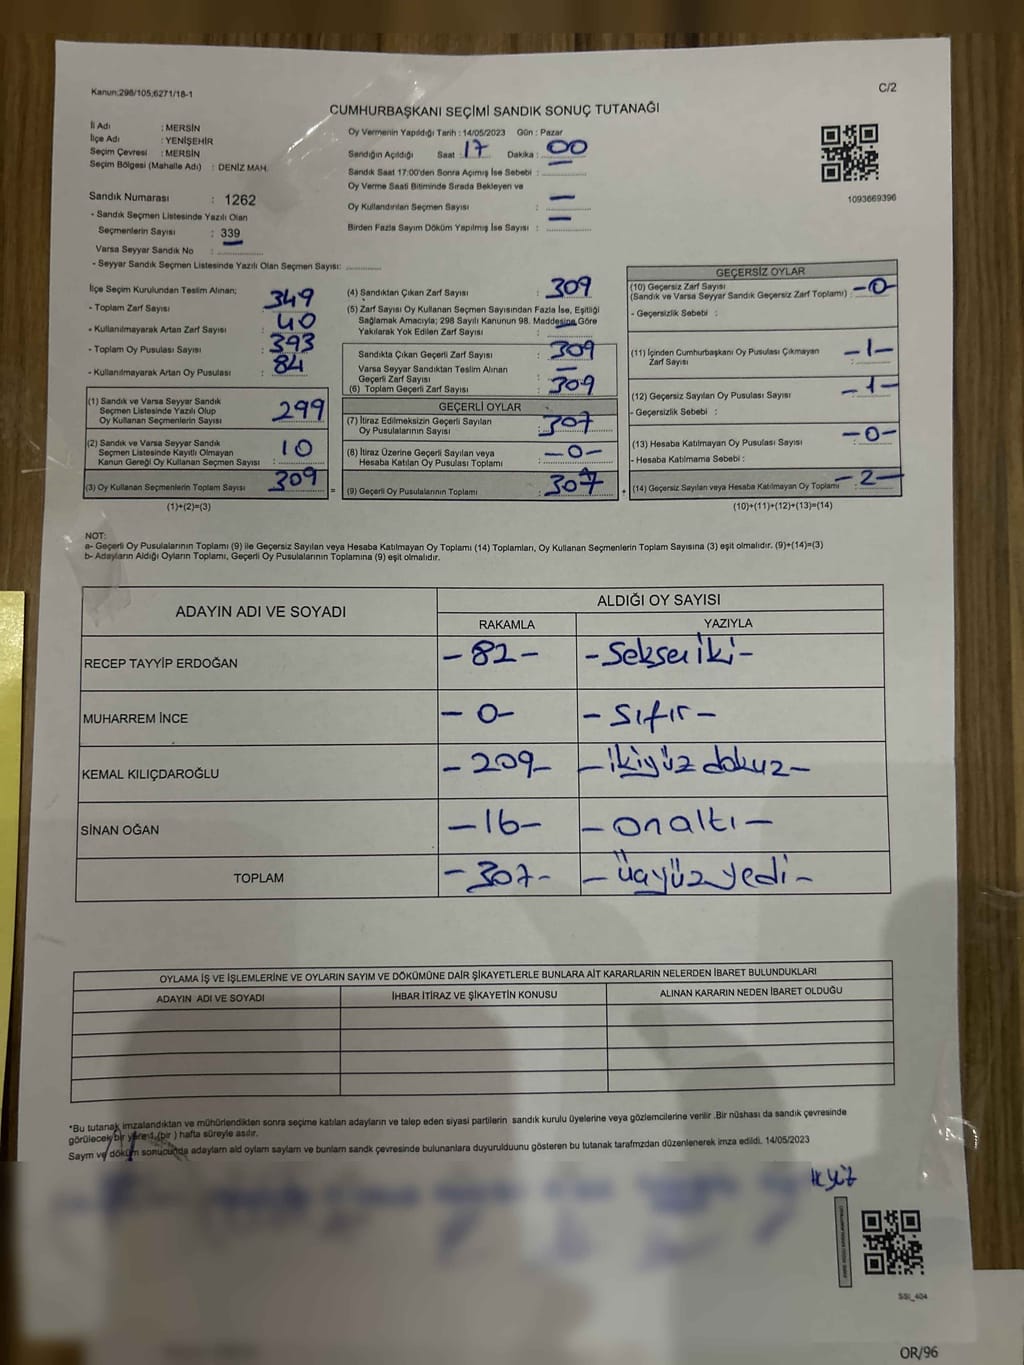 Kanun;298/105;6271/18-1
C/2
CUMHURBAŞKANI SEÇİMİ SANDIK SONUÇ TUTANAĞI
İl Adı : MERSİN
İlçe Adı : YENİŞEHİR
Seçim Çevresi : MERSİN
Seçim Bölgesi (Mahalle Adı) : DENİZ MAH.
Sandık Numarası : 1262
- Sandık Seçmen Listesinde Yazılı Olan
Seçmenlerin Sayısı : 339
Varsa Seyyar Sandık No :
- Seyyar Sandık Seçmen Listesinde Yazılı Olan Seçmen Sayısı:
Oy Vermenin Yapıldığı Tarih : 14/05/2023 Gün : Pazar
Sandığın Açıldığı Saat : 17 Dakika : 00
Sandık Saat 17:00'den Sonra Açımış İse Sebebi : —
Oy Verme Saati Bitiminde Sırada Bekleyen ve
Oy Kullandırılan Seçmen Sayısı : —
Birden Fazla Sayım Döküm Yapılmış İse Sayısı : —
1093669396
İlçe Seçim Kurulundan Teslim Alınan;
- Toplam Zarf Sayısı : 349
- Kullanılmayarak Artan Zarf Sayısı : 40
- Toplam Oy Pusulası Sayısı : 393
- Kullanılmayarak Artan Oy Pusulası : 84
(1) Sandık ve Varsa Seyyar Sandık
Seçmen Listesinde Yazılı Olup
Oy Kullanan Seçmenlerin Sayısı : 299
(2) Sandık ve Varsa Seyyar Sandık
Seçmen Listesinde Kayıtlı Olmayan
Kanun Gereği Oy Kullanan Seçmen Sayısı : 10
(3) Oy Kullanan Seçmenlerin Toplam Sayısı : 309
(1)+(2)=(3)
(4) Sandıktan Çıkan Zarf Sayısı : 309
(5) Zarf Sayısı Oy Kullanan Seçmen Sayısından Fazla İse, Eşitliği
Sağlamak Amacıyla; 298 Sayılı Kanunun 98. Maddesine Göre
Yakılarak Yok Edilen Zarf Sayısı : —
Sandıkta Çıkan Geçerli Zarf Sayısı : 309
Varsa Seyyar Sandıktan Teslim Alınan
Geçerli Zarf Sayısı : —
(6) Toplam Geçerli Zarf Sayısı : 309
GEÇERLİ OYLAR
(7) İtiraz Edilmeksizin Geçerli Sayılan
Oy Pusulalarının Sayısı : 307
(8) İtiraz Üzerine Geçerli Sayılan veya
Hesaba Katılan Oy Pusulası Toplamı : —0—
(9) Geçerli Oy Pusulalarının Toplamı : 307
=
+
GEÇERSİZ OYLAR
(10) Geçersiz Zarf Sayısı
(Sandık ve Varsa Seyyar Sandık Geçersiz Zarf Toplamı) : —0—
- Geçersizlik Sebebi :
(11) İçinden Cumhurbaşkanı Oy Pusulası Çıkmayan
Zarf Sayısı : —1—
(12) Geçersiz Sayılan Oy Pusulası Sayısı : —1—
- Geçersizlik Sebebi :
(13) Hesaba Katılmayan Oy Pusulası Sayısı : —0—
- Hesaba Katılmama Sebebi :
(14) Geçersiz Sayılan veya Hesaba Katılmayan Oy Toplamı : —2—
(10)+(11)+(12)+(13)=(14)
NOT:
a- Geçerli Oy Pusulalarının Toplamı (9) ile Geçersiz Sayılan veya Hesaba Katılmayan Oy Toplamı (14) Toplamları, Oy Kullanan Seçmenlerin Toplam Sayısına (3) eşit olmalıdır. (9)+(14)=(3)
b- Adayların Aldığı Oyların Toplamı, Geçerli Oy Pusulalarının Toplamına (9) eşit olmalıdır.
ADAYIN ADI VE SOYADI ALDIĞI OY SAYISI
RAKAMLA YAZIYLA
RECEP TAYYİP ERDOĞAN —82— —Seksen iki—
MUHARREM İNCE —0— —Sıfır—
KEMAL KILIÇDAROĞLU —209— —ikiyüz dokuz—
SİNAN OĞAN —16— —onaltı—
TOPLAM —307— —üçyüz yedi—
OYLAMA İŞ VE İŞLEMLERİNE VE OYLARIN SAYIM VE DÖKÜMÜNE DAİR ŞİKAYETLERLE BUNLARA AİT KARARLARIN NELERDEN İBARET BULUNDUKLARI
ADAYIN ADI VE SOYADI İHBAR İTİRAZ VE ŞİKAYETİN KONUSU ALINAN KARARIN NEDEN İBARET OLDUĞU
*Bu tutanak imzalandıktan ve mühürlendikten sonra seçime katılan adayların ve talep eden siyasi partilerin sandık kurulu üyelerine veya gözlemcilerine verilir .Bir nüshası da sandık çevresinde
görülecek bir yere 1 (bir ) hafta süreyle asılır.
Sayım ve döküm sonucunda adayların ald oylam saylam ve bunlam sandk çevresinde bulunanlara duyurulduunu gösteren bu tutanak tarafmzdan düzenlenerek imza edildi. 14/05/2023
SSI_404
OR/96